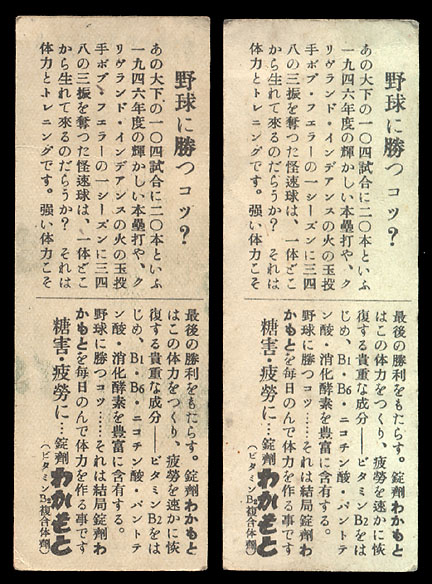 野球に勝つコツ?
あの大下の一〇四試合に二〇本といふ
一九四六年度の輝かしい本壘打や、ク
リヴランド・インデアンスの火の玉投
手ボブ・フェラーの一シーズンに三四
八の三振を奪つた怪速球は、一体どこ
から生れて來るのだらうか? それは
体力とトレニングです。強い体力こそ
最後の勝利をもたらす。錠劑わかもと
はこの体力をつくり、疲勞を速かに恢
復する貴重な成分――ビタミンB2をは
じめ、B1・B6・ニコチン酸・パントテ
ン酸・消化酵素を豊富に含有する。
野球に勝つコツ……それは結局錠劑わ
かもとを毎日のんで体力を作る事です
糖害・疲勞に…錠劑わかもと
(ビタミンB2複合体劑)
野球に勝つコツ?
あの大下の一〇四試合に二〇本といふ
一九四六年度の輝かしい本壘打や、ク
リヴランド・インデアンスの火の玉投
手ボブ・フェラーの一シーズンに三四
八の三振を奪つた怪速球は、一体どこ
から生れて來るのだらうか? それは
体力とトレニングです。強い体力こそ
最後の勝利をもたらす。錠劑わかもと
はこの体力をつくり、疲勞を速かに恢
復する貴重な成分――ビタミンB2をは
じめ、B1・B6・ニコチン酸・パントテ
ン酸・消化酵素を豊富に含有する。
野球に勝つコツ……それは結局錠劑わ
かもとを毎日のんで体力を作る事です
糖害・疲勞に…錠劑わかもと
(ビタミンB2複合体劑)